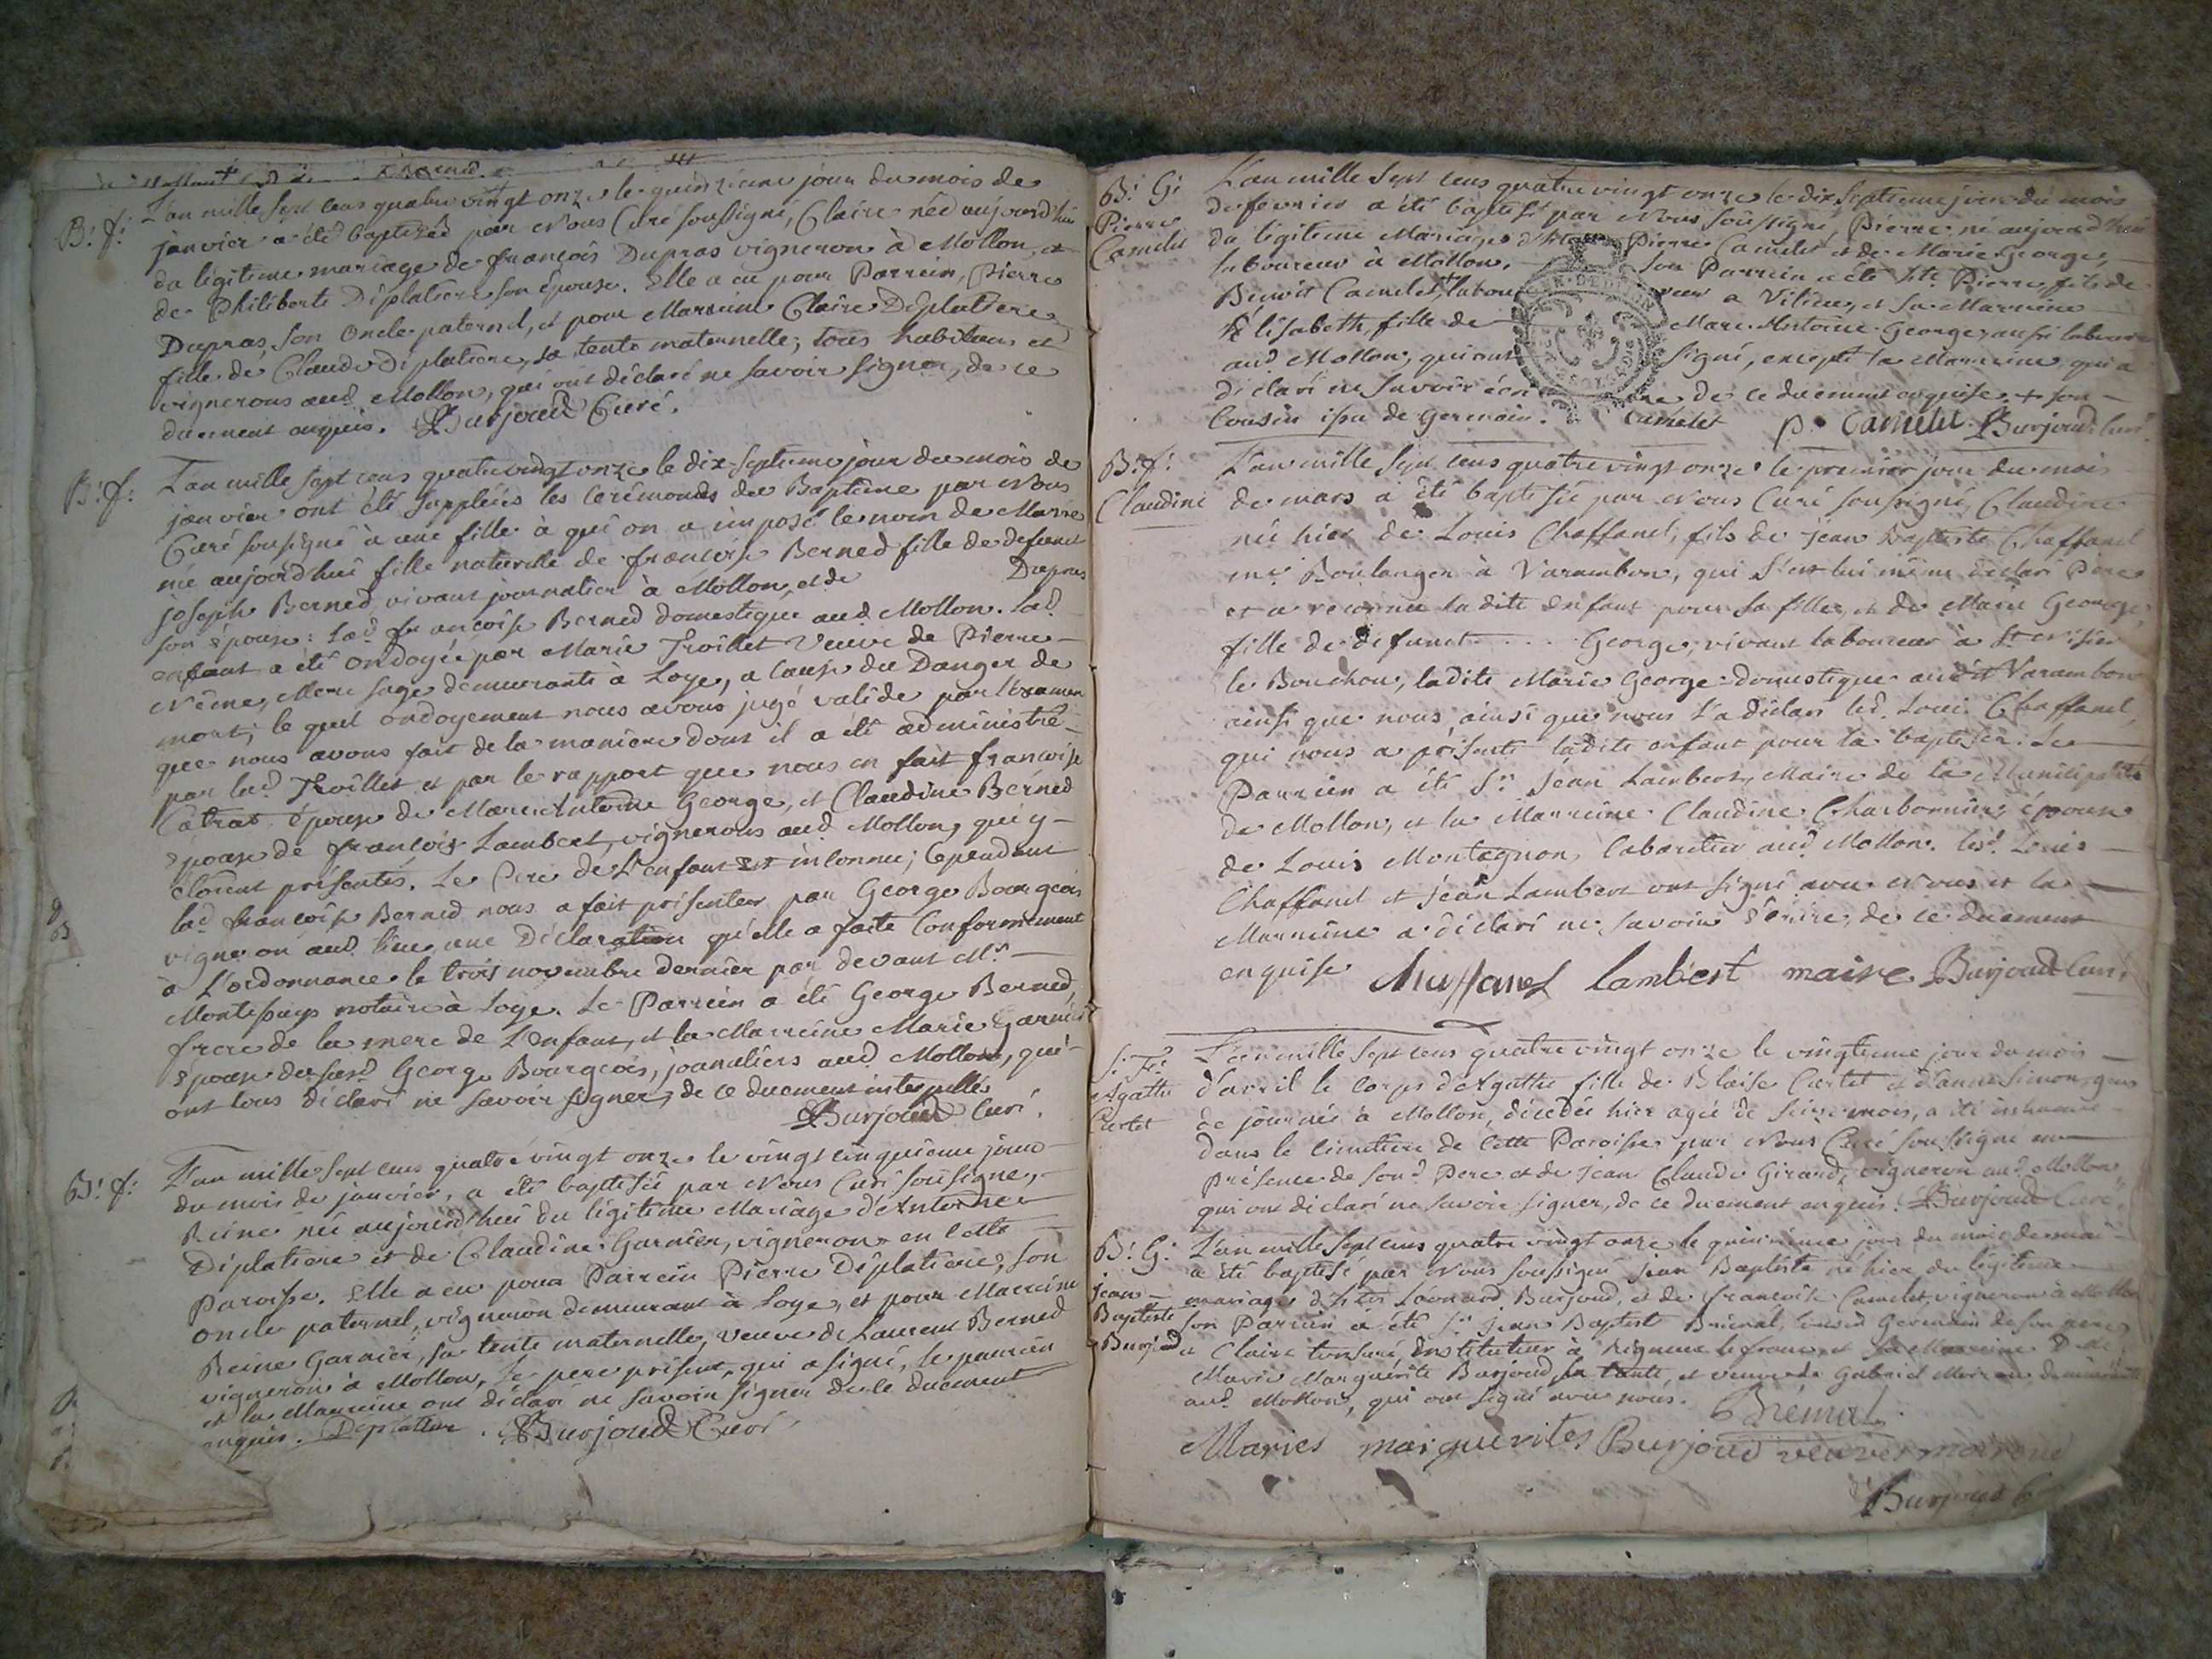 B: f:
L'an mille sept cens quatre vingt onze le quinzieme jour du mois de
janvier a été baptisée par Nous Curé soussigné, Claire née aujourd'hui
du légitime mariage de françois Dupras vigneron à Mollon, et
de Philiberte Déplatiere son épouse. Elle a eu pour Parrein, Pierre
Dupras, son Oncle paternel, et pour Marreine Claire Déplatiere
fille de Claude Déplatiere, sa tente maternelle; tous habitans et
vignerons aud. Mollon, qui ont déclaré ne savoir signer, de ce
duement enquis. Burjoud Curé.
B: f:
L'an mille sept cens quatre vingt onze le dix-septieme jour du mois de
janvier ont été suppléés les Cerémonies du Baptême par Nous
Curé soussigné à une fille à qui on a imposé le nom de Marie
née aujourd'hui fille naturelle de françoise Berned fille de defunct
joseph Berned, vivant journalier à Mollon, et de Dupras
son épouse: lad. françoise Berned domestique aud. Mollon. Lad.
enfant a été ondoyée par Marie Troillet Veuve de Pierre
Nême, Mere sage demeurante à Loye, a cause du Danger de
mort; le quel ondoyement nous avons jugé valide par l'examen
que nous avons fait de la maniere dont il a été administré
par lad. Troillet et par le rapport que nous en fait françoise
Catras épouse de Marc Antoine George, et Claudine Berned
épouse de françois Lambert, vignerons aud. Mollon, qui y
étoient présentes. Le Pere de L'enfant est inconnu; Cependant
lad. françoise Berned nous a fait présenter par George Bourgeois
vigneron aud. lieu, une Déclaration qu'elle a faite Conformément
à L'ordonnance le trois novembre dernier par devant Me
Montessuys notaire à Loye. Le Parrein a été George Berned,
frere de la mere de L'enfant, et la Marreine Marie Garnier
épouse dususd. George Bourgeois, journaliers aud. Mollon, qui
ont tous déclaré ne savoir signer, de ce duement interpellés
Burjoud Curé.
B: f:
L'an mille sept cens quatre vingt onze le vingt cinquieme jour
du mois de janvier, a été baptisée par Nous Curé soussigné,
Reine née aujourd'hui du légitime Mariage d'Antoine
Déplatiere et de Claudine Garnier, vigneron en cette
Paroisse. Elle a eu pour Parrein Pierre Déplatiere, son
oncle paternel, vigneron demeurant à Loye, et pour Marreine
Reine Garnier, sa tente maternelle, veuve de Laurent Berned
vigneron à Mollon. Le pere présent, qui a signé, le parrein
et la Marreine ont déclaré ne savoir signer de ce duement
enquis. Déplatiere. Burjoud Curé
B: G:
Pierre
Camelet
L'an mille sept cens quatre vingt onze le dix septieme jour du mois
de fevrier a été baptisé par Nous soussigné, Pierre né aujourd'hui
du légitime Mariage de Pierre Camelet et de Marie George,
laboureur à Mollon. son Parrein a été Pierre, fils de
Benoit Camelet, laboureur a Vilieu, et sa Marreine
Elisabeth, fille de Marc Antoine George, aussi laboureur
aud. Mollon, qui ont signé, excepté la Marreine qui a
déclaré ne savoir écrire de ce duement enquise. + son
Cousin issu de Germain. Camelet p. Camelet. Burjoud Curé
B: f:
Claudine
L'an mille sept cens quatre vingt onze le premier jour du mois
de mars a été baptisée par Nous Curé soussigné, Claudine
née hier de Louis Chaffanel, fils de jean Baptiste Chaffanel
me Boulanger à Varambon, qui s'est lui même déclaré Pere
et a reconnu ladite enfant pour sa fille, et de Marie George,
fille de defunct .... George, vivant laboureur à St Nisier
le Bouchou, ladite Marie George domestique audit Varambon
ainsi que nous, ainsi que nous l'a déclaré led. Louis Chaffanel,
qui nous a présenté ladite enfant pour la baptiser. Le
Parrein a été Sr. Jean Lambert, Maire de la Municipalité
de Mollon, et la Marreine Claudine Charbonnier, épouse
de Louis Montagnon, Cabaretier aud. Mollon. lesd. Louis
Chaffanel et Jean Lambert ont signé avec Nous et la
Marreine a déclaré ne savoir écrire, de ce duement
enquise Chaffanel lambert maire Burjoud Curé
S: F:
Agathe
Curtet
L'an mille sept cens quatre vingt onze le vingtieme jour du mois
d'avril le Corps d'Agathe fille de Blaise Curtet et d'anne Simon, gens
de journée à Mollon, décédée hier agée de seize mois, a été inhumé
dans le Cimetiere de cette Paroisse par Nous Curé soussigné en
présence de sond. Pere et de jean Claude Girard, vigneron aud. Mollon
qui ont déclaré ne savoir signer, de ce duement enquis. Burjoud Curé
B: G:
jean
Baptiste
Burjoud
L'an mille sept cens quatre vingt onze le quinzieme jour du mois de mai
a été baptisé par Nous soussigné jean Baptiste né hier du légitime
mariage de Leonard Burjoud, et de françoise Camelet, vigneron à Mollon
son Parrein a été Sr. jean Baptiste Brémal, Cousin Germain de son pere
Clairc tonsuré, Instituteur à et sa Marreine Dlle
Marie Marguérite Burjoud sa tante, et veuve de Gabriel demeurante
aud. Mollon, qui ont signé avec nous. Brémal
Maries marguerites Burjoud veuves
Burjoud